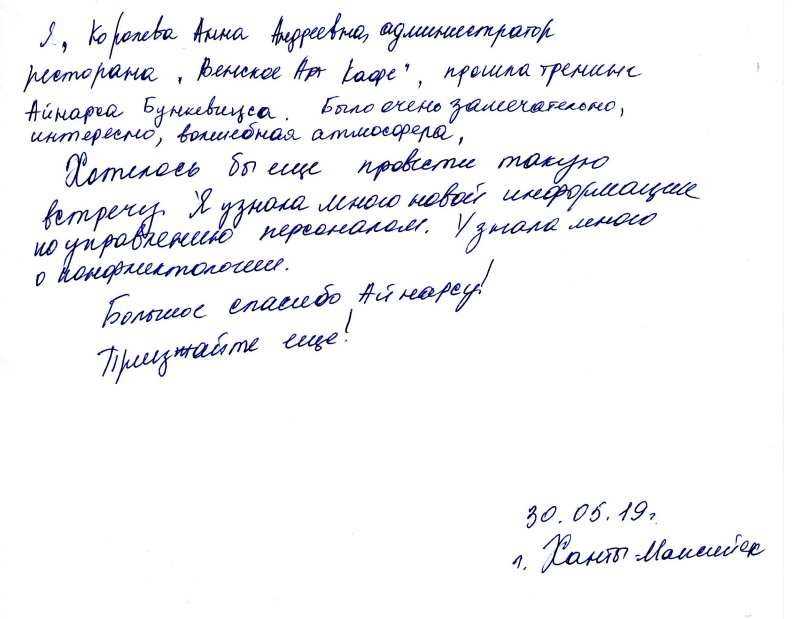 Я, Королева Анна Андреевна, администратор
ресторана "Венское Арт Кафе", прошла тренинг
Айнарса Бункевицса. Было очено замечательно,
интересно, волшебная атмосфера,
Хотелось бы еще провести такую
встречу. Я узнала много новой информации
по управлению персоналом. Узнала много
о конфликтологии.
Большое спасибо Айнарсу!
Приезжайте еще!
30.05.19г.
г. Ханты-Мансийск